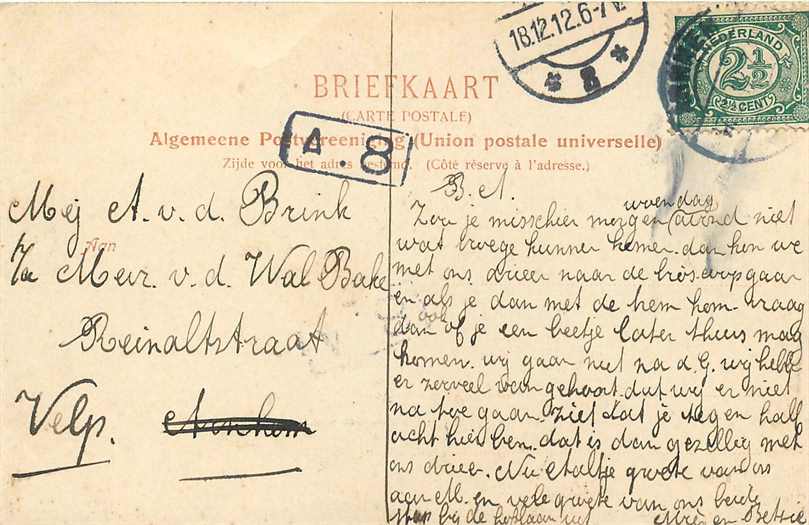 18.12.12.6-7V
8
NEDERLAND
2½
2½ CENT
BRIEFKAART
(CARTE POSTALE)
Algemeene Postvereeniging (Union postale universelle)
Zijde voor het adres bestemd. (Côté réservé à l'adresse.)
A.8
Mej A. v. d. Brink
Aan
p/a Mevr. v. d. Wal Bake
Reinaltstraat
Velp. Arnhem
B. A.
woensdag
Zou je misschien morgen avond niet
wat vroege kunnen komen dan kon we
met ons drieen naar de gaan
en als je dan met de trem kom vraag
ook
dan of je een beetje later thuis mag
komen. wij gaan niet na d. G. wij hebbe
er zooveel van gehoort dat wij er niet
na toe gaan. zief dat je tegen half
acht hier ben. dat is dan gezellig met
ons drieen. Nu groete van ons
aan M. en vele groete van ons beide
bij de uit en Betsie